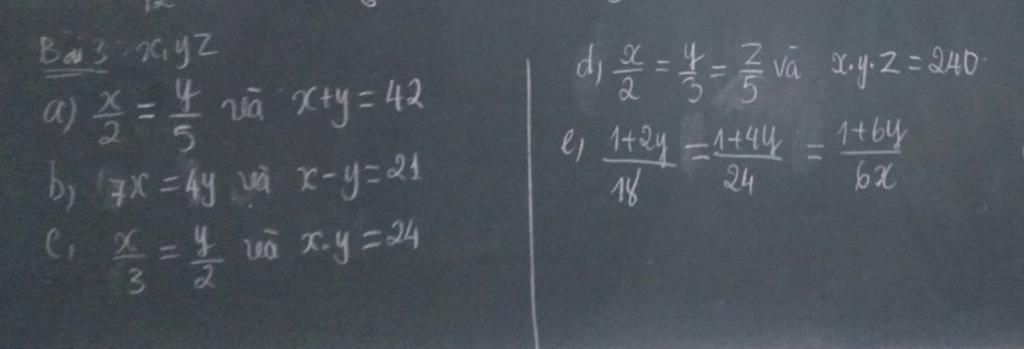 Bài 3 x, y z
a) x/2 = y/5 và x+y=42
b) 7x = 4y và x-y=21
c, x/3 = y/2 và x.y=24
d, x/2 = y/3 = z/5 và x.y.z=240
e, 1+2y/18 = 1+4y/24 = 1+6y/6x